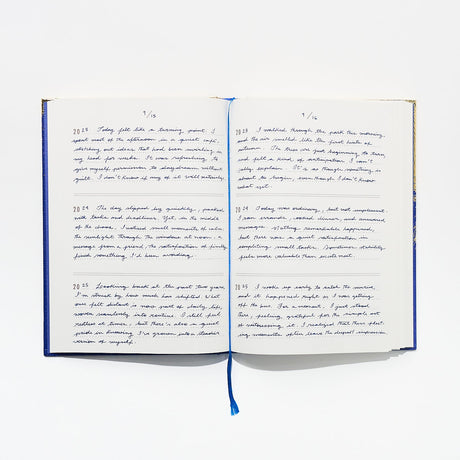 9/15
2023 Today felt like a turning point. I
spent most of the afternoon in a quiet café,
sketching out ideas that had been swirling in
my head for weeks. It was refreshing to
give myself permission to daydream without
guilt. I don't know if any of it will
2024 The day slipped by quickly, packed
with tasks and deadlines. Yet, in the middle
of the chaos, I noticed small moments of calm:
the sunlight through the windows at noon, a
message from a friend, the satisfaction of finally
finishing something I'd been avoiding.
2025 Looking back at the past two years,
I'm struck by how much has shifted. What
once felt distant is now part of daily life,
woven seamlessly into routine. I still feel
restless at times, but there's also a quiet
pride in knowing I've grown into a steadier
version of myself.
9/16
2023 I walked through the park this morning,
and the air smelled like the first hints of
autumn. The trees are just beginning to turn,
and I felt a kind of anticipation I can't
fully explain. It's as though something is
about to begin, even though I don't know
what yet.
2024 Today was ordinary, but not unimportant.
I ran errands, cooked dinner, and answered
messages. Nothing remarkable happened,
but there was a quiet satisfaction in
completing small tasks. Sometimes stability
feels more valuable than excitement.
2025 I woke up early to catch the sunrise,
and it happened right as I was getting
off the bus. For a moment, I just stood
there, feeling grateful for the simple act
of witnessing it. I realized that these fleet-
ing moments often leave the deepest impression.